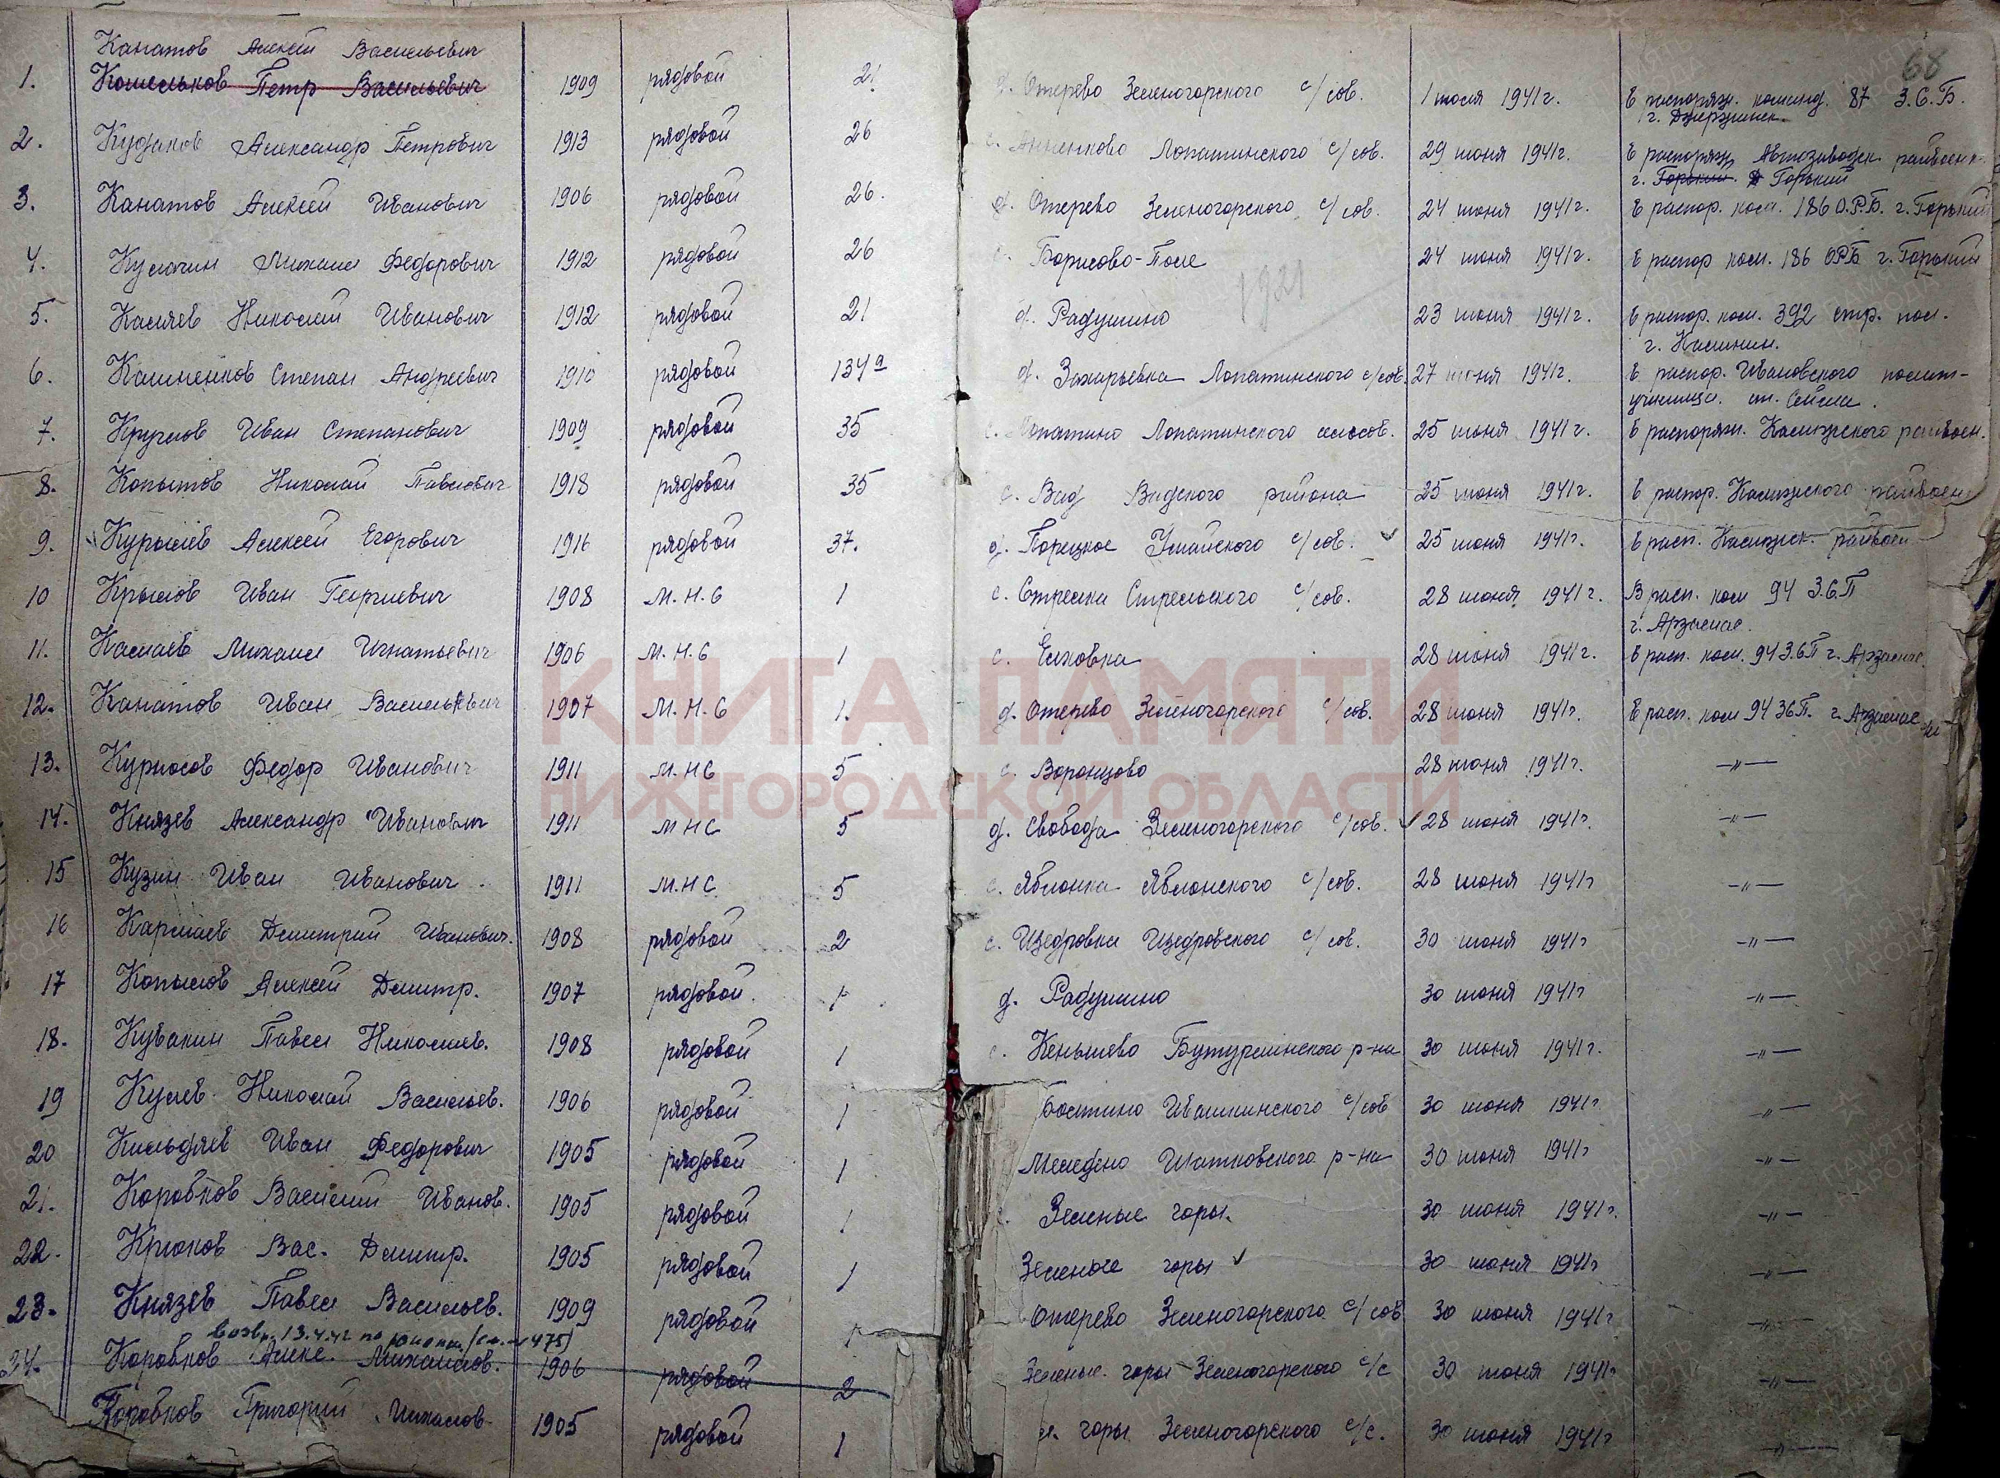 68
Канатов Алексей Васильевич
1. Кошельков Петр Васильевич 1909 рядовой 21 д. Отерево Зеленогорского с/сов. 1 июля 1941 г. В распоряж. команд. 87 З.С.Б.
г. Дзержинск.
2. Кудаков Александр Петрович 1913 рядовой 26 с. Анненково Лопатинского с/сов. 29 июня 1941г. В распоряж Автозаводск. райвоенк.
г. Горький. Горький
3. Канатов Алексей Иванович 1906 рядовой 26. д. Отерево Зеленогорского с/сов. 24 июня 1941 г. В распор. ком. 186 О.Р.Б. г. Горький
4. Кулагин Михаил Федорович 1912 рядовой 26 с. Борисово-Поле 24 июня 1941 г. В распор ком. 186 ОРБ г. Горький
1921
5. Каляев Николай Иванович 1912 рядовой 21 д. Радушино 23 июня 1941 г. В распор. ком. 392 стр. пол.
г. Калинин.
6. Калиненков Степан Андреевич 1910 рядовой 134а д. Захарьевка Лопатинского с/сов. 27 июня 1941 г. В распор. Ивановского полит-
училища. ст. Сейма.
7. Круглов Иван Степанович 1909 рядовой 35 с. Лопатино Лопатинского сельсов. 25 июня 1941 г. В распоряж. райвоен.
8. Копытов Николай Павлович 1918 рядовой 35 с. Вад Вадского района 25 июня 1941г. В распор. райвоен
9. Курылев Алексей Егорович 1916 рядовой 37. д. Порецкое Умайского с/сов. 25 июня 1941г. В расп. райвоен
10 Крылов Иван Георгиевич 1908 М.Н.С 1 с. Стрелка Стрельского с/сов. 28 июня 1941 г. В расп. ком 94 З.С.П
г. Арзамас.
11. Камаев Михаил Игнатьевич 1906 М.Н.С 1 с. Елховка 28 июня 1941 г. В расп. ком. 94 З.С.П г. Арзамас.
12. Канатов Иван Васильевич 1907 М.Н.С 1. д. Отерево Зеленогорского с/сов. 28 июня 1941г. В расп. ком 94 ЗСП. г. Арзамас
13. Курносов Федор Иванович 1911 М.НС 5 с. Воронцово 28 июня 1941г. —"—
14. Князев Александр Иванович 1911 МНС 5 д. Свобода Зеленогорского с/сов. 28 июня 1941г. —"—
15 Кузин Иван Иванович 1911 М.НС 5 с. Яблонка Яблонского с/сов. 28 июня 1941г —"—
16 Кармаев Дмитрий Иванович. 1908 рядовой 2 с. Щедровка Щедровского с/сов. 30 июня 1941г —"—
17 Копылов Алексей Дмитр. 1907 рядовой. 1 д. Радушино 30 июня 1941г —"—
18. Кувакин Павел Николаев. 1908 рядовой 1 с. Кенышево Бутурлинского р-на 30 июня 1941г. —"—
19 Кулев Николай Васильев. 1906 рядовой 1 Болтино Ивашкинского с/сов 30 июня 1941г —"—
20 Кильдяев Иван Федорович 1905 рядовой 1 Меледено Шатковского р-на 30 июня 1941г —"—
21. Коробков Василий Иванов. 1905 рядовой 1 Зеленые горы. 30 июня 1941г. —"—
22. Крюков Вас. Дмитр. 1905 рядовой 1 Зеленые горы 30 июня 1941г —"—
23. Князев Павел Васильев. 1909 рядовой 1 Отерево Зеленогорского с/сов 30 июня 1941г —"—
возвр. 13.4.42 по 475)
24. Коробков Алекс. Михайлов. 1906 рядовой 2 Зеленые горы Зеленогорского с/с 30 июня 1941г —"—
Коробков Григорий Михайлов. 1905 рядовой 1 горы Зеленогорского с/с. 30 июня 1941г —"—
КНИГА ПАМЯТИ
НИЖЕГОРОДСКОЙ ОБЛАСТИ
ПАМЯТЬ НАРОДА